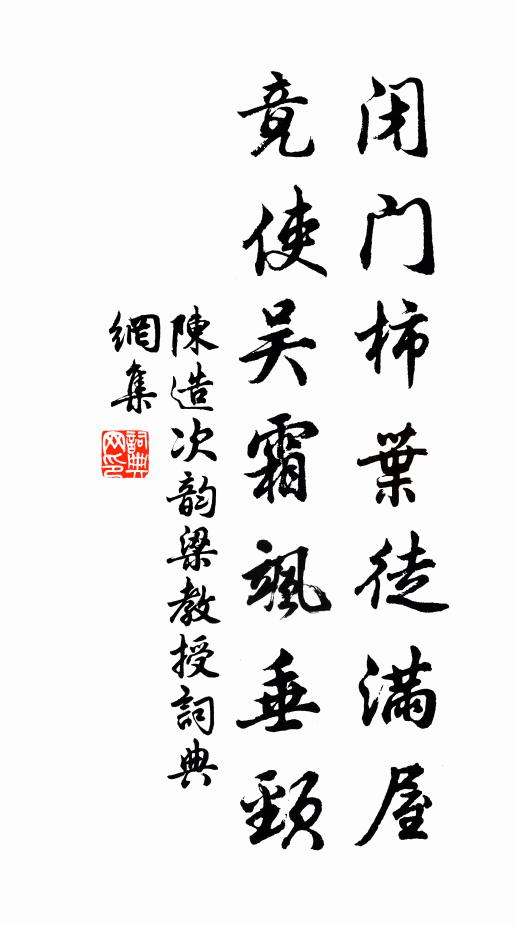 闭门柿葉徒满屋
竟使吴霜颯垂頸
陳造次韵梁教授詞典
網集
詞典
网印